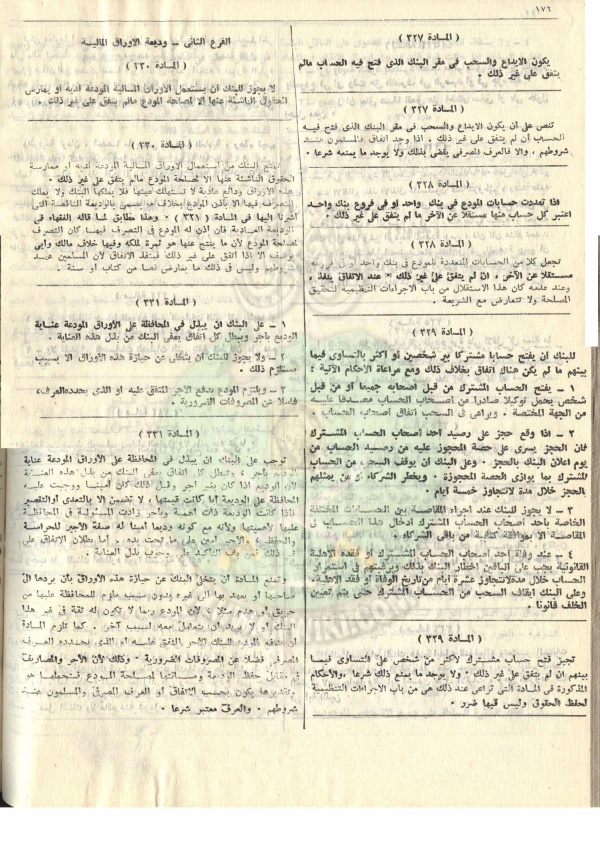 ١٧٦
( المادة ٣٢٧ )
يكون الايداع والسحب فى مقر البنك الذى فتح فيه الحساب مالم
يتفق على غير ذلك ٠
( المادة ٣٢٧ )
تنص على أن يكون الايداع والسحب فى مقر البنك الذى فتح فيه
الحساب أن لم يتفق على غير ذلك ٠ واذا وجد اتفاق فالمسلمون عند
شروطهم ، والا فالعرف المصرفى يقضى بذلك ولا يوجد ما يمنعه شرعا ٠
( المادة ٣٢٨ )
اذا تعددت حسابات المودع فى بنك واحد او فى فروع بنك واحد
اعتبر كل حساب منها مستقلا عن الآخر ما لم يتفق على غير ذلك ٠
( المادة ٣٢٨ )
تجعل كلا من الحسابات المتعددة للمودع فى بنك واحد أو فى فروعه
مستقلا عن الآخر ٠ ان لم يتفق على غير ذلك ٠ عند الاتفاق ينفذ ٠
وعند عدمه كان هذا الاستقلال من باب الاجراءات التنظيمية لتحقيق
المصلحة ولا تتعارض مع الشريعة ٠
( المادة ٣٢٩ )
للبنك ان يفتح حسابا مشتركا بين شخصين أو اكثر بالتساوى فيما
بينهم ما لم يكن هناك اتفاق بخلاف ذلك ومع مراعاة الاحكام الآتية :
١ - يفتح الحساب المشترك من قبل اصحابه جميعا أو من قبل
شخص يحمل توكيلا صادرا من اصحاب الحساب مصدقا عليه
من الجهة المختصة ٠ ويراعى فى السحب اتفاق اصحاب الحساب ٠
٢ - اذا وقع حجز على رصيد أحد أصحاب الحساب المشترك
فان الحجز يسرى على حصة المحجوز عليه من رصيد الحساب من
يوم اعلان البنك بالحجز ٠ وعلى البنك أن يوقف السحب من الحساب
المشترك بما يوازى الحصة المحجوزة ٠ ويخطر الشركاء أو من يمثلهم
بالحجز خلال مدة لا تتجاوز خمسة أيام ٠
٣ - لا يجوز للبنك عند اجراء المقاصة بين الحسابات المختلفة
الخاصة بأحد أصحاب الحساب المشترك ادخال هذا الحساب فى
المقاصة الا بموافقة كتابية من باقى الشركاء ٠
٤ - عند وفاة أحد أصحاب الحساب المشترك أو فقده الاهلية
القانونية يجب على الباقين اخطار البنك بذلك وبرغبتهم فى استمرار
الحساب خلال مدة لا تتجاوز عشرة أيام من تاريخ الوفاة أو فقد الاهلية ٠
وعلى البنك ايقاف السحب من الحساب المشترك حتى يتم تعيين
الخلف قانونا ٠
( المادة ٣٢٩ )
تجيز فتح حساب مشترك لاكثر من شخص على التساوى فيما
بينهم ان لم يتفق على غير ذلك ٠ ولا يوجد ما يمنع ذلك شرعا ٠ والاحكام
المذكورة فى المادة التى تراعى عند ذلك هى من باب الاجراءات التنظيمية
لحفظ الحقوق وليس فيها ضرر ٠
الفرع الثانى - وديعة الاوراق المالية
( المادة ٣٣٠ )
لا يجوز للبنك ان يستعمل الاوراق المالية المودعة لديه أو يمارس
الحقوق الناشئة عنها الا لمصلحة المودع مالم يتفق على غير ذلك ٠
( المادة ٣٣٠ )
البنك من استعمال الاوراق المالية المودعة لديه أو ممارسة
الحقوق الناشئة عنها الا لمصلحة المودع مالم يتفق على غير ذلك ٠
هذه الاوراق ودائع عادية لا تستهلك عينها فلا يملكها البنك ولا يملك
التصرف فيها الا باذن المودع بخلاف ما يسمى بالوديعة الناقصة التى
أشرنا اليها فى المادة ( ٣٢١ ) ٠ وهذا مطابق لما قاله الفقهاء فى
الوديعة العادية فان اذن له المودع فى التصرف فيها كان التصرف
لمصلحة المودع لأن ما ينتج عنها هو ثمرة ملكه وفيها خلاف مالك وأبى
يوسف الا اذا اتفق على غير ذلك ٠ فينفذ الاتفاق لان المسلمين عند
شروطهم وليس فى ذلك ما يعارض نصا من كتاب أو سنة ٠
( المادة ٣٣١ )
١ - على البنك ان يبذل فى المحافظة على الأوراق المودعة عناية
الوديع بأجر ويبطل كل اتفاق يعفى البنك من بذل هذه العناية ٠
٢ - ولا يجوز للبنك أن يتخلى عن حيازة هذه الاوراق الا بسبب
يستلزم ذلك ٠
٣ - ويلتزم المودع بدفع الأجر المتفق عليه أو الذى يحدده العرف،
فضلا عن المصروفات الضرورية ٠
( المادة ٣٣١ )
توجب على البنك أن يبذل فى المحافظة على الاوراق المودعة عناية
الوديع بأجر ، وتبطل كل اتفاق يعفى البنك من بذل هذه العناية
لأن الوديع اذا كان بغير أجر وقبل ذلك كان أمينا ووجبت عليه
المحافظة على الوديعة أيا كانت قيمتها ، لا تضمن الا بالتعدى او التقصير
فاذا كانت الوديعة ذات أهمية وبأجر زادت المسئولية فى المحافظة
عليها لاهميتها ولأنه مع كونه وديعا أمينا له صفة الأجير للحراسة
والحفظ ، والأجير أمين على ما تحت يده ٠ أما بطلان الاتفاق على
ذلك فمن باب التأكيد على وجوب بذل العناية ٠
وتمنع المادة أن يتخلى البنك عن حيازة هذه الأوراق بأن يردها الى
صاحبها أو يعهد بها الى غيره بدون سبب ملزم للمحافظة عليها من
حريق أو هدم مثلا ، لأن المودع ربما لا تكون له ثقة فى غير هذا
البنك أو لا يريد أن يتعامل معه لسبب آخر ٠ كما تلزم المادة
أن يدفع المودع للبنك الأجر المتفق عليه أو الذى يحدده العرف
المصرفى فضلا عن المصروفات الضرورية ٠ وذلك لأن الأجر والمصاريف
فى مقابل حفظ الوديعة وصيانتها لمصلحة المودع فتحملها هو
وتقديرها يكون بحسب الاتفاق أو العرف المصرفى والمسلمون عند
شروطهم ٠ والعرف معتبر شرعا ٠